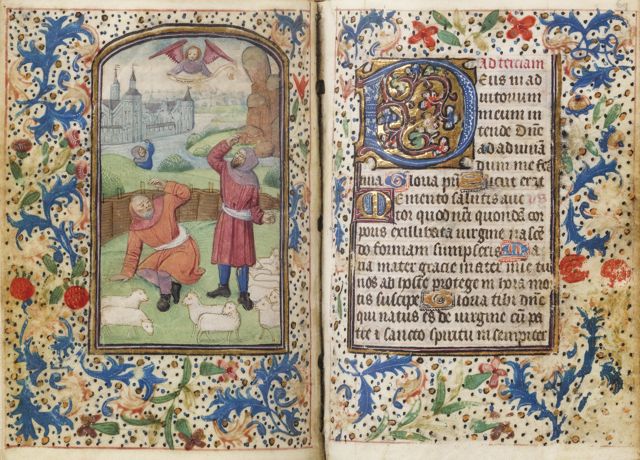 Ad terciam
Deus in ad
iutorium
meum in
tende Dne
ad adiuuā
dum me fes
tina Gloria pri Sicut erat
Memento salutis auc
tor quod nrī quondā cor
poris exillibata uirgine nascē
do formam sumpseris Ma
ria mater gracie mater mie tu
nos ab hoste protege in hora mor
tis suscipe Gloria tibi dne
qui natus es de uirgine cū pa
tre et sancto spiritu in sempiter